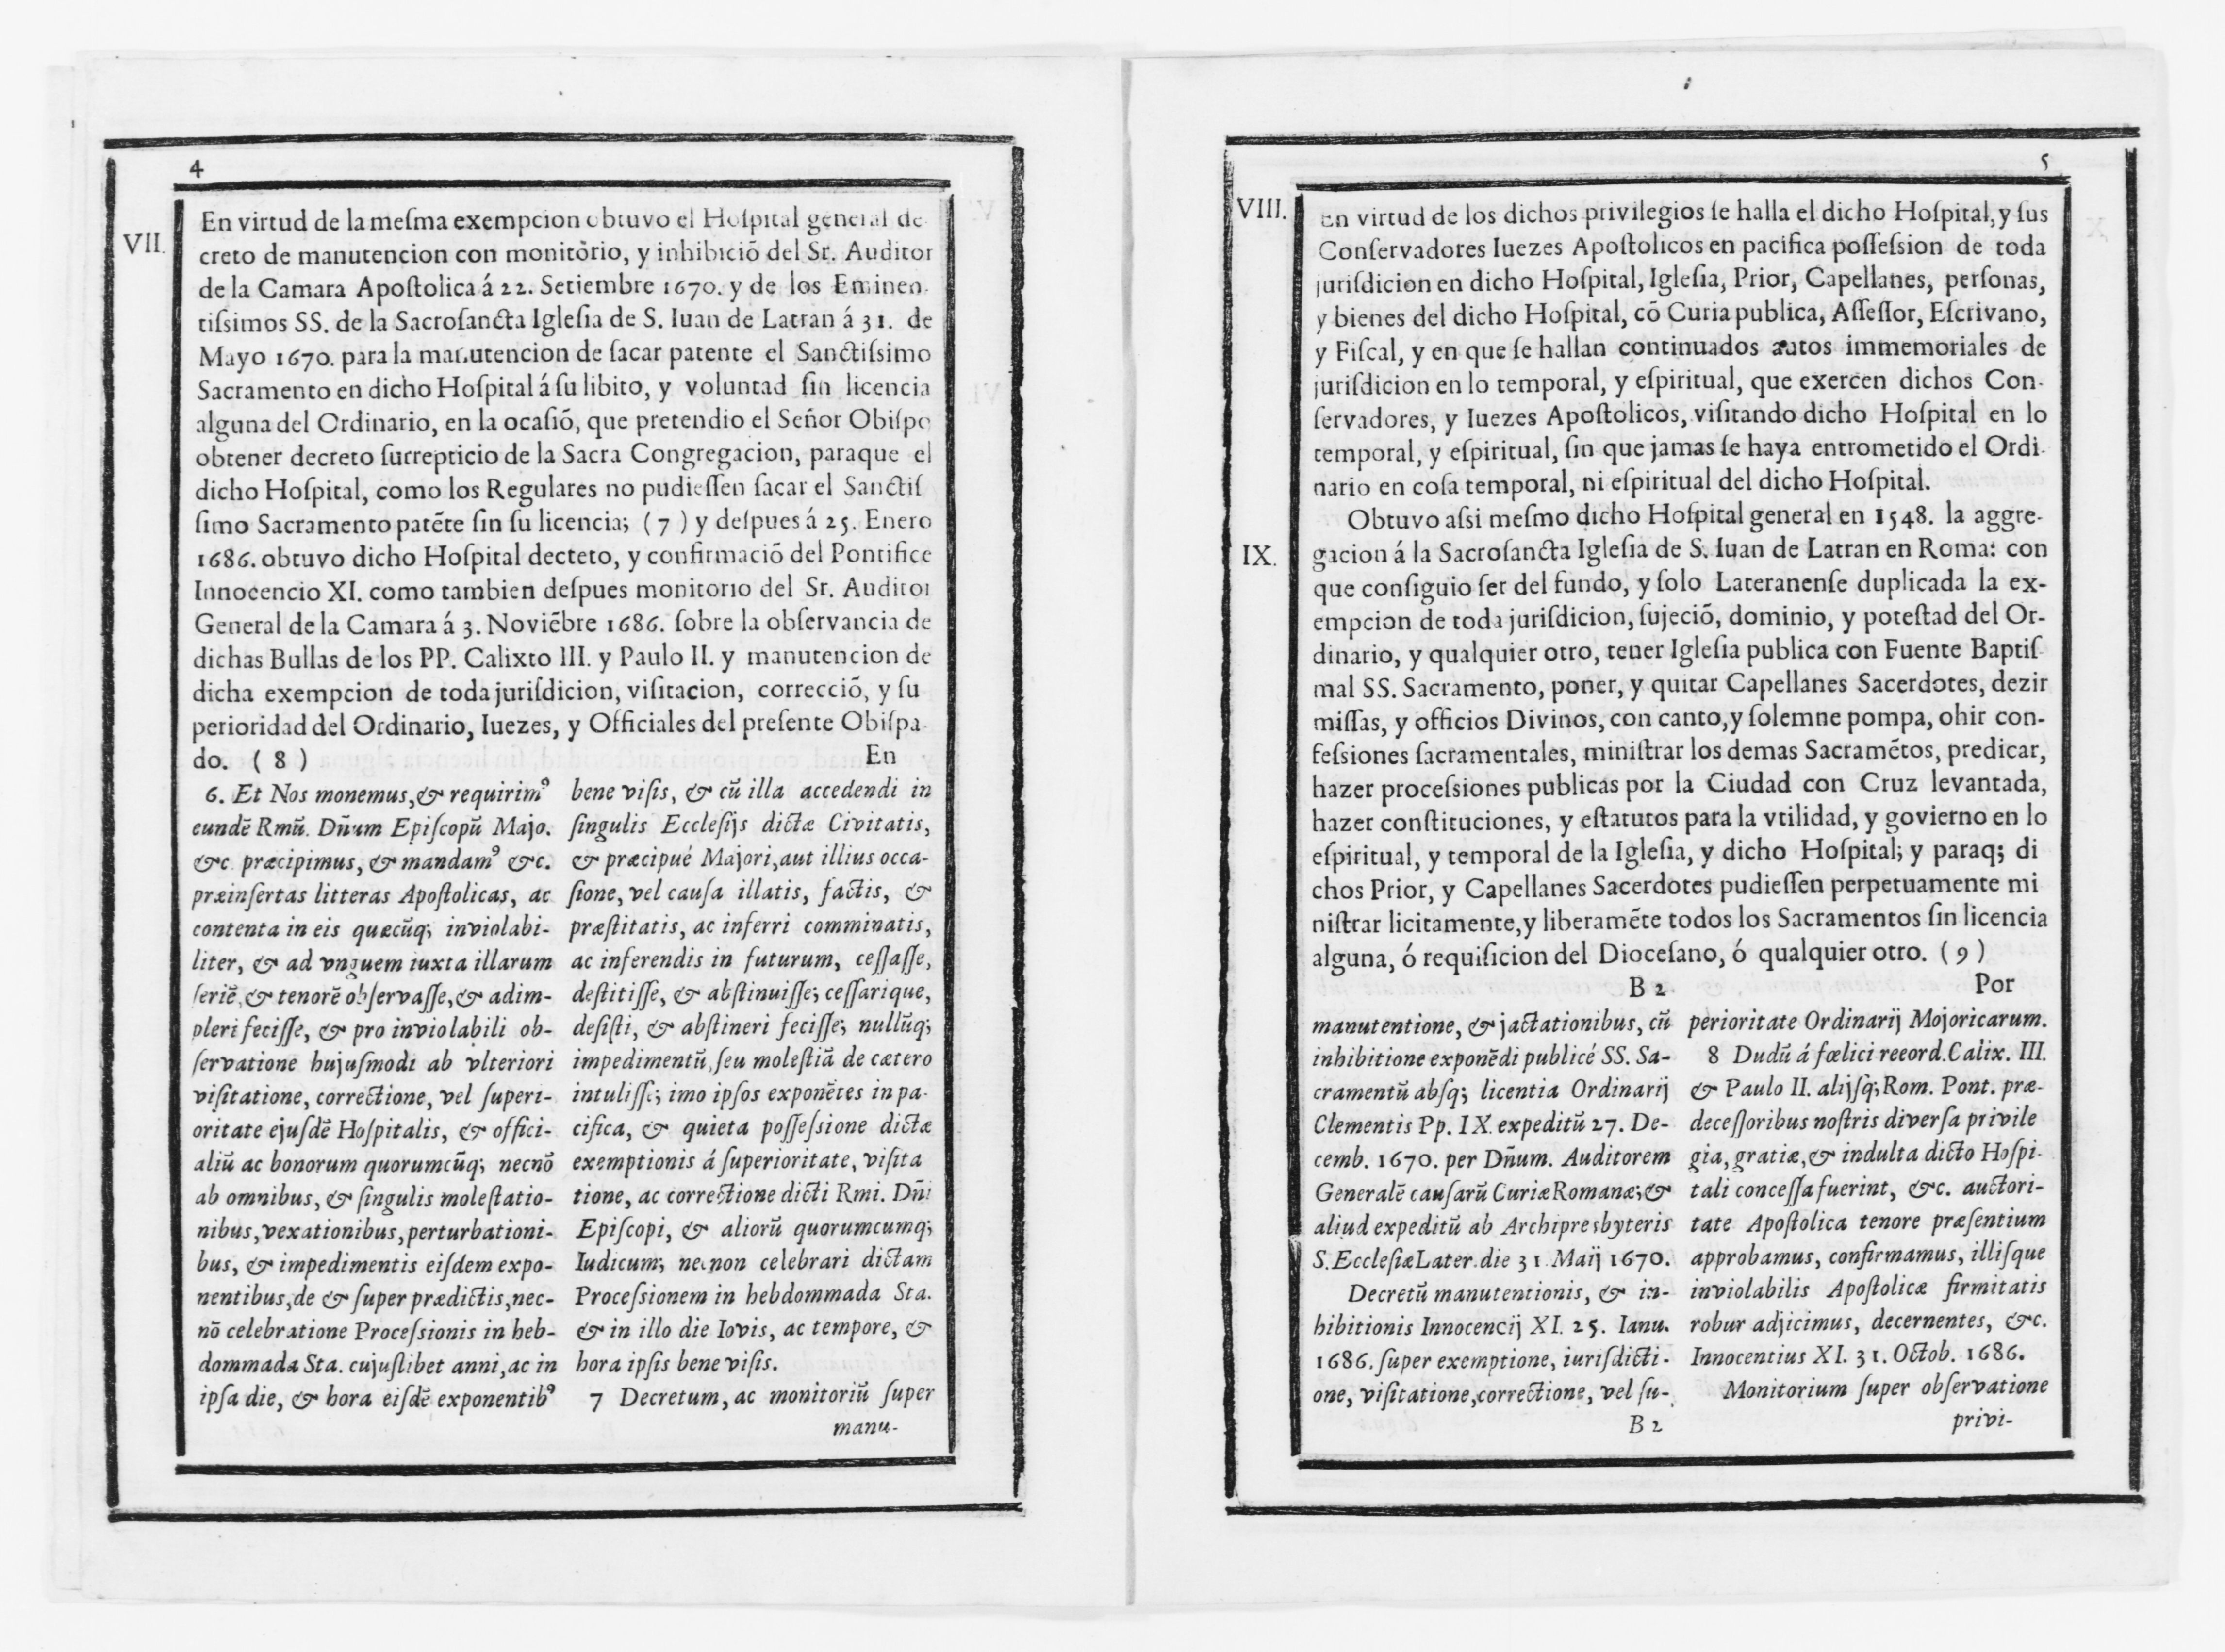 4
VII.
En virtud de la meſma exempcion obtuvo el Hoſpital general de
creto de manutencion con monitòrio, y inhibiciō del Sr. Auditor
de la Camara Apoſtolica á 22. Setiembre 1670. y de los Eminen
tiſsimos SS. de la Sacroſancta Igleſia de S. Iuan de Latran á 31. de
Mayo 1670. para la manutencion de ſacar patente el Sanctiſsimo
Sacramento en dicho Hoſpital á ſu libito, y voluntad ſin licencia
alguna del Ordinario, en la ocaſiō, que pretendio el Señor Obiſpo
obtener decreto ſurrepticio de la Sacra Congregacion, paraque el
dicho Hoſpital, como los Regulares no pudieſſen ſacar el Sanctiſ
ſimo Sacramento patēte ſin ſu licencia; ( 7 ) y deſpues á 25. Enero
1686. obtuvo dicho Hoſpital decteto, y confirmaciō del Pontifice
Innocencio XI. como tambien deſpues monitorio del Sr. Auditor
General de la Camara á 3. Noviēbre 1686. ſobre la obſervancia de
dichas Bullas de los PP. Calixto III. y Paulo II. y manutencion de
dicha exempcion de toda juriſdicion, viſitacion, correcciō, y ſu
perioridad del Ordinario, Iuezes, y Officiales del preſente Obiſpa
do. ( 8 ) En
6. Et Nos monemus, & requirimꝰ
eundē Rmū. Dñum Epiſcopū Majo.
&c præcipimus, & mandamꝰ &c.
præinſertas litteras Apoſtolicas, ac
contenta in eis quæcūq; inviolabi-
liter, & ad vnguem iuxta illarum
ſeriē, & tenorē obſervaſſe, & adim-
pleri feciſſe, & pro inviolabili ob-
ſervatione hujuſmodi ab vlteriori
viſitatione, correctione, vel ſuperi-
oritate ejuſdē Hoſpitalis, & offici-
aliū ac bonorum quorumcūq; necnō
ab omnibus, & ſingulis moleſtatio-
nibus, vexationibus, perturbationi-
bus, & impedimentis eiſdem expo-
nentibus, de & ſuper prædictis, nec-
nō celebratione Proceſsionis in heb-
dommada Sta. cujuſlibet anni, ac in
ipſa die, & hora eiſdē exponentibꝰ
bene viſis, & cū illa accedendi in
ſingulis Eccleſijs dictæ Civitatis,
& præcipué Majori, aut illius occa-
ſione, vel cauſa illatis, factis, &
præſtitatis, ac inferri comminatis,
ac inferendis in futurum, ceſſaſſe,
deſtitiſſe, & abſtinuiſſe; ceſſarique,
deſiſti, & abſtineri feciſſe; nullūq;
impedimentū, ſeu moleſtiā de cætero
intuliſſe; imo ipſos exponētes in pa-
cifica, & quieta poſſeſsione dictæ
exemptionis á ſuperioritate, viſita
tione, ac correctione dicti Rmi. Dñi
Epiſcopi, & aliorū quorumcumq;
Iudicum; necnon celebrari dictam
Proceſsionem in hebdommada Sta.
& in illo die Iovis, ac tempore, &
hora ipſis bene viſis.
7 Decretum, ac monitoriū ſuper
manu-
5
VIII.
En virtud de los dichos privilegios ſe halla el dicho Hoſpital, y ſus
Conſervadores Iuezes Apoſtolicos en pacifica poſſeſsion de toda
juriſdicion en dicho Hoſpital, Igleſia, Prior, Capellanes, perſonas,
y bienes del dicho Hoſpital, cō Curia publica, Aſſeſſor, Eſcrivano,
y Fiſcal, y en que ſe hallan continuados autos immemoriales de
juriſdicion en lo temporal, y eſpiritual, que exercen dichos Con-
ſervadores, y Iuezes Apoſtolicos, viſitando dicho Hoſpital en lo
temporal, y eſpiritual, ſin que jamas ſe haya entrometido el Ordi-
nario en coſa temporal, ni eſpiritual del dicho Hoſpital.
Obtuvo aſsi meſmo dicho Hoſpital general en 1548. la aggre-
IX.
gacion á la Sacroſancta Igleſia de S. Iuan de Latran en Roma: con
que conſiguio ſer del fundo, y ſolo Lateranenſe duplicada la ex-
empcion de toda juriſdicion, ſujeciō, dominio, y poteſtad del Or-
dinario, y qualquier otro, tener Igleſia publica con Fuente Baptiſ-
mal SS. Sacramento, poner, y quitar Capellanes Sacerdotes, dezir
miſſas, y officios Divinos, con canto, y ſolemne pompa, ohir con-
feſsiones ſacramentales, miniſtrar los demas Sacramētos, predicar,
hazer proceſsiones publicas por la Ciudad con Cruz levantada,
hazer conſtituciones, y eſtatutos para la vtilidad, y govierno en lo
eſpiritual, y temporal de la Igleſia, y dicho Hoſpital; y paraq; di
chos Prior, y Capellanes Sacerdotes pudieſſen perpetuamente mi
niſtrar licitamente, y liberamēte todos los Sacramentos ſin licencia
alguna, ó requiſicion del Dioceſano, ó qualquier otro. ( 9 )
B 2 Por
manutentione, & jactationibus, cū
inhibitione exponēdi publicé SS. Sa-
cramentū abſq; licentia Ordinarij
Clementis Pp. IX. expeditū 27. De-
cemb. 1670. per Dñum. Auditorem
Generalē cauſarū Curiæ Romanæ; &
aliud expeditū ab Archipresbyteris
S. Eccleſiæ Later. die 31 Maij 1670.
Decretū manutentionis, & in-
hibitionis Innocencij XI. 25. Ianu.
1686. ſuper exemptione, iuriſdicti-
one, viſitatione, correctione, vel ſu-
B 2
perioritate Ordinarij Mojoricarum.
8 Dudū á fœlici reeord. Calix. III.
& Paulo II. alijſq; Rom. Pont. præ-
deceſſoribus noſtris diverſa privile
gia, gratiæ, & indulta dicto Hoſpi-
tali conceſſa fuerint, &c. auctori-
tate Apoſtolica tenore præſentium
approbamus, confirmamus, illiſque
inviolabilis Apoſtolicæ firmitatis
robur adjicimus, decernentes, &c.
Innocentius XI. 31. Octob. 1686.
Monitorium ſuper obſervatione
privi-